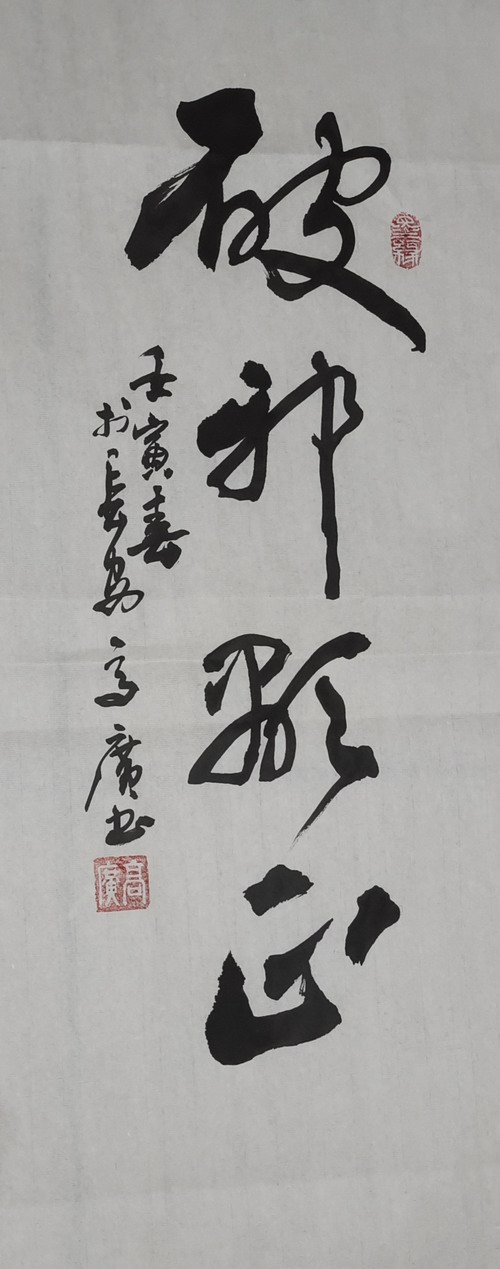 破邪顕正
壬寅春
於長安高廣书
高廣